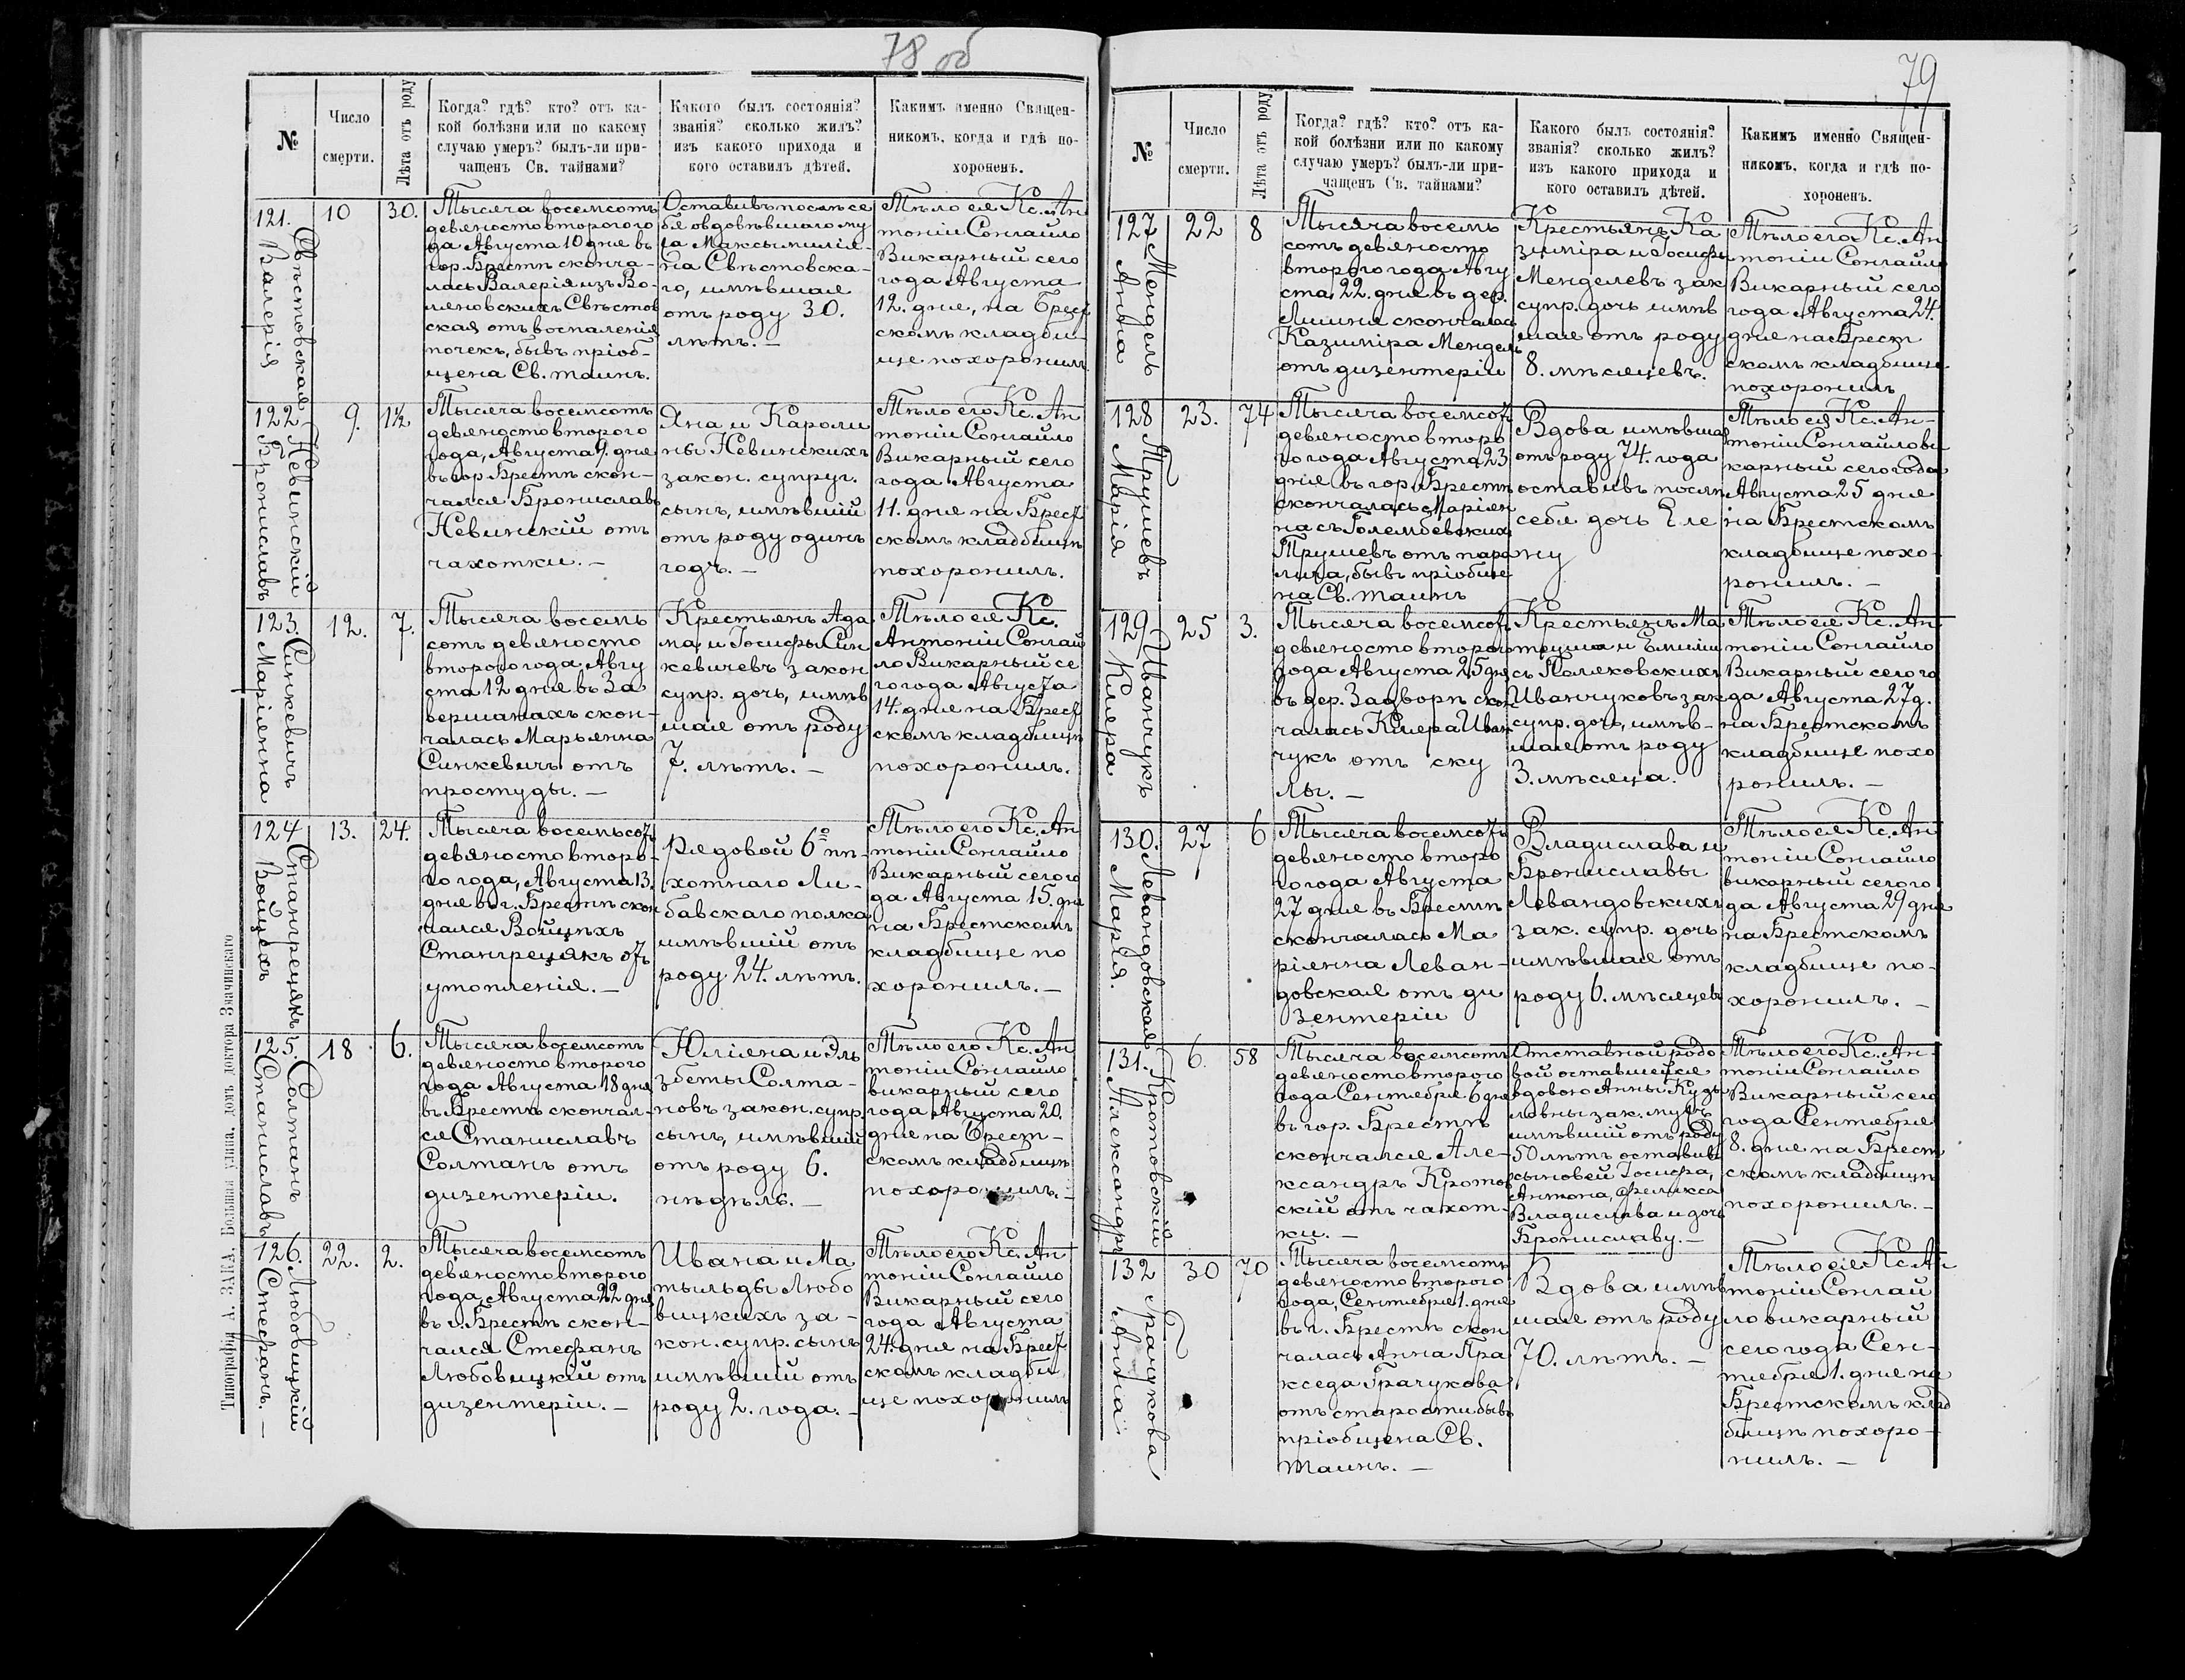 78 об
№
Число
смерти.
Лѣта отъ роду
Когда? гдѣ? кто? отъ ка-
кой болѣзни или по какому
случаю умеръ? былъ-ли при-
чащенъ Св. тайнами?
Какого былъ состоянія?
званія? сколько жилъ?
изъ какого прихода и
кого оставилъ дѣтей.
Какимъ именно Священ-
никомъ, когда и гдѣ по-
хороненъ.
121.
Свѣстовская
Валерія
10
30.
Тысяча восемсотъ
девяностовторогого
да Августа 10 дня въ
гор. Брестѣ сконча-
лась Валерія изъ Во-
леновскихъ Свѣстов
ская отъ воспаленія
почекъ, бывъ пріоб-
щена Св. таинъ.
Оставивъ послѣ се
бя овдовѣвшаго му
жа Максымилія-
на Свѣстовска-
го, имѣвшая
отъ роду 30.
лѣтъ. —
Тѣло ея Кс. Ан
тоній Сонгайло
Викарный сего
года Августа
12. дня, на Брест
скомъ кладби-
ще похоронилъ.
122
Невинскій
Брониславъ
9.
1½
Тысяча восемсотъ
девяностовторого
года, Августа 9. дня
въ гор Брестѣ скон-
чался Брониславъ
Невинскій отъ
чахотки. —
Яна и Кароли
ны Невинскихъ
закон. супруг.
сынъ, имѣвшій
отъ роду одинъ
годъ. —
Тѣло его Кс. Ан
тоній Сонгайло
Викарный сего
года Августа
11. дня на Брест
скомъ кладбищѣ
похоронилъ.
123.
Синкевичъ
Маріянна
12.
7.
Тысяча восемь
сотъ девяносто
второго года Авгу
ста 12 дня въ За
вершанахъ скон-
чалась Марьянна
Синкевичъ отъ
простуды. —
Крестьянъ Ада
ма и Іосифы Син
кевичевъ закон
супр. дочь, имѣв
шая отъ роду
7. лѣтъ. —
Тѣло ея Кс.
Антоній Сонгай
ло Викарный се
го года Августа
14. дня на Брест
скомъ кладбищѣ
похоронилъ.
124
Стангрецякъ
Войцехъ
13.
24.
Тысяча восемьсотъ
девяностовторо-
го года, Августа 13.
дня в г. Брестѣ скон
чался Войцѣхъ
Стангрецякъ отъ
утопленія. —
Рядовой 6го пѣ-
хотнаго Ли-
бавскаго полка
имѣвшій отъ
роду 24. лѣтъ.
Тѣло его Кс. Ан
тоній Сонгайло
Викарный сего го
да Августа 15. дня
на Брестскомъ
кладбище по
хоронилъ. —
125.
Солтанъ
Станиславъ
18
6.
Тысяча восемсотъ
девяностовторого
года Августа 18 дня
въ Брестѣ скончал-
ся Станиславъ
Солтанъ отъ
дизентеріи.
Юліяна и Эль
збеты Солта-
новъ закон. супр.
сынъ, имѣвшій
отъ роду 6.
нѣдѣль. —
Тѣло его Кс. Ан
тоній Сонгайло
викарный сего
года Августа 20.
дня на Брест-
скомъ кладбищѣ
похоронилъ. —
126.
Любовицкій
Стефанъ. —
22.
2.
Тысяча восемсотъ
девяностовторого
года, Августа 22 дня
въ г. Брестѣ скон-
чался Стефанъ
Любовицкій отъ
дизентеріи. —
Ивана и Ма
тыльды Любо
вицкихъ за-
кон. супр. сынъ
имѣвшій отъ
роду 2. года. —
Тѣло его Кс. Ан
тоній Сонгайло
Викарный сего
года Августа
24. дня на Брест
скомъ кладби
ще похоронилъ
Типографія А. ЗАКА, Большая улица, домъ доктора Значинскаго
79
№
Число
смерти.
Лѣта отъ роду
Когда? гдѣ? кто? отъ ка-
кой болѣзни или по какому
случаю умеръ? былъ-ли при-
чащенъ Св. тайнами?
Какого былъ состоянія?
званія? сколько жилъ?
изъ какого прихода и
кого оставилъ дѣтей.
Какимъ именно Священ-
никомъ, когда и гдѣ по-
хороненъ.
127
Мендель
Анна
22
8
Тысяча восемь
сотъ девяносто
второго года Авгу
ста 22. дня въ дер.
скончалась
Казиміра Мендель
отъ дизентеріи
Крестьянъ Ка
зиміра и Іосифы
Менделевъ зак
супр. дочь имѣв
шая отъ роду
8. мѣсяцевъ.
Тѣло его Кс. Ан
тоній Сонгайло
Викарный сего
года Августа 24.
дня на Брест
скомъ кладбище
похоронилъ
128
Трушевъ
Марія
23.
74
Тысяча восемсотъ
девяностовторо
го года Августа 23
дня въ гор. Брестѣ
скончалась Маріян
на съ Голембевскихъ
Трушевъ отъ пара
лича, бывъ пріобще
на Св. таинъ
Вдова имѣвшая
отъ роду 74. года
оставивъ послѣ
себя дочь Еле
ну
Тѣло ея Кс. Ан-
тоній Сонгайло ви
карный сего года
Августа 25 дня
на Брестскомъ
кладбище похо-
ронилъ. —
129
Иванчукъ
Клера
25
3.
Тысяча восемсотъ
девяностовторого
года Августа 25 дня
въ дер. Задворѣ скон
чалась Клера Иван
чукъ отъ ску
лы. —
Крестьянъ Ма
теуша и Емиліи
съ Поляковскихъ
Иванчуковъ зак
супр. дочь, имѣв-
шая отъ роду
3. мѣсяца.
Тѣло ея Кс. Ан
тоній Сонгайло
Викарный сего го
да Августа 27 д.
на Брестскомъ
кладбище похо
ронилъ. —
130.
Левандовская
Марія.
27
6
Тысяча восемсотъ
девяностовторо
го года Августа
27 дня въ Брестѣ
скончалась Ма
ріянна Леван-
довская отъ ди
зентеріи
Владислава и
Брониславы
Левандовскихъ
зак. супр. дочь
имѣвшая отъ
роду 6. мѣсяцевъ
Тѣло ея Кс. Ан
тоній Сонгайло
викарный сего го
да Августа 29 дня
на Брестскомъ
кладбище по-
хоронилъ. —
131.
Кротовскій
Александръ
6.
58
Тысяча восемсотъ
девяностовторого
года Сентября 6 дня
въ гор. Брестѣ
скончался Але-
ксандръ Кротов
скій отъ чахот-
ки. —
Отставной рядо
вой оставшейся
вдовою Анны
зак. мужъ
имѣвшій отъ роду
50 лѣтъ оставивъ
сыновей Іосифа,
Антона, Феликса
Владислава и дочь
Брониславу. —
Тѣло его Кс. Ан-
тоній Сонгайло
Викарный сего
года Сентября
8. дня на Брест
скомъ кладбищѣ
похоронилъ. —
132
Грачукова
Анна
30
70
Тысяча восемсотъ
девяностовторого
года, Сентября 1. дня
въ г. Брестѣ скон
чалась Анна Пра
кседа Грачукова
отъ старости бывъ
пріобщена Св.
таинъ. —
Вдова имѣв
шая отъ роду
70. лѣтъ. —
Тѣло ея Кс. Ан
тоній Сонгай
ло викарный
сего года Сен-
тября 1. дня на
Брестскомъ клад
бищѣ похоро-
нилъ. —